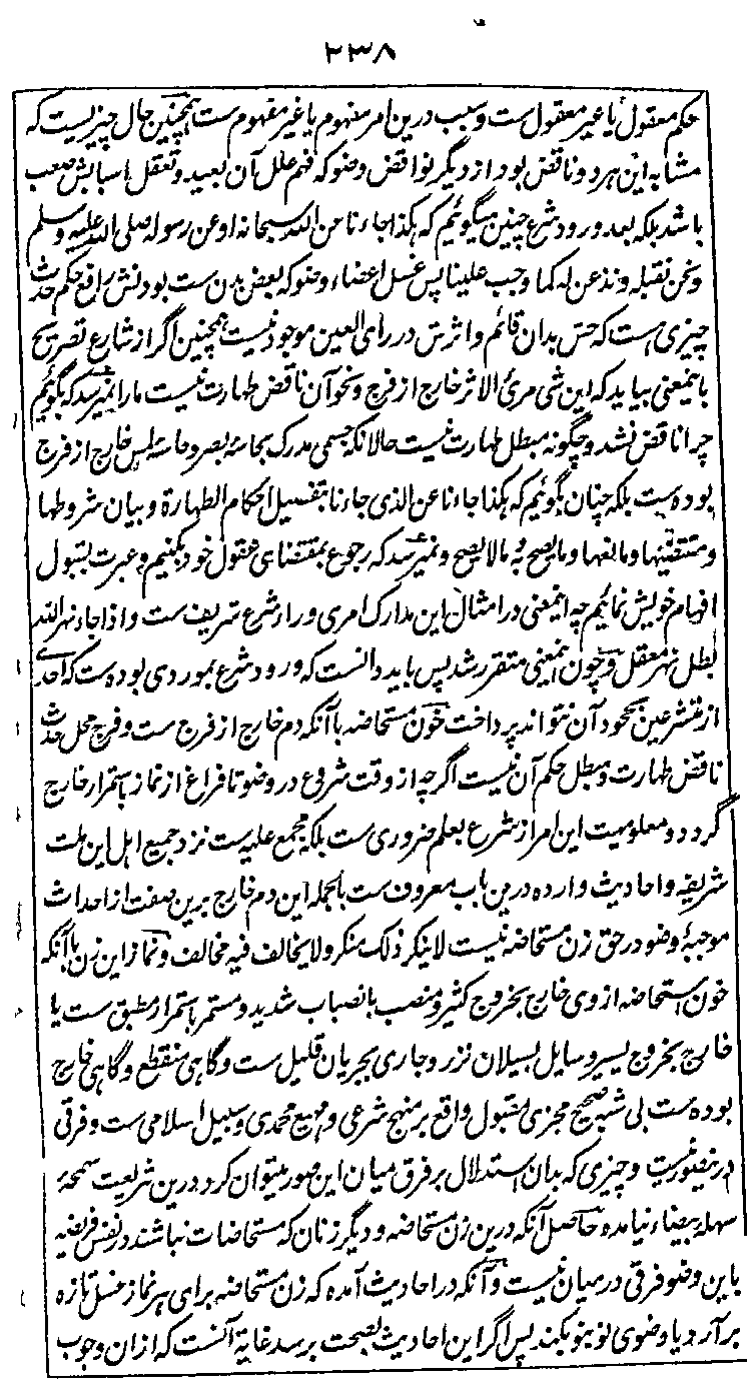 ۲۳۸
حکم معقول یا غیر معقول ست و سبب درین امر مفهوم یا غیر مفهوم ست همچنین حال چیزیست که
مشابه این هر دو ناقض بود از دیگر نواقض وضو که فهم علل آن بعید و تعقل اسبابش صعب
باشد بلکه بعد ورود شرع چنین میگوئیم که هکذا جاءنا عن الله سبحانه او عن رسوله صلی الله علیه وسلم
ونحن نقبله ونذعن له کما وجب علینا پس غسل اعضاء وضو که بعض بدن ست بودنش رافع حکم حدث
چیزی ست که حس بدان قائم و اثرش در رای العین موجود نیست همچنین اگر از شارع تصریح
باینمعنی بیاید که این شی مرئ الاثر خارج از فرج و نحو آن ناقض طهارت نیست ما را نمیرسد که بگوئیم
چرا ناقض نشد و چگونه مبطل طهارت نیست حالانکه جسمی مدرک بحاسۀ بصر و حاسۀ لمس خارج از فرج
بوده ست بلکه چنان بگوئیم که هکذا جاءنا عن الذی جاءنا بتفصیل احکام الطهارة و بیان شروطها
و مقتضیها و مانعها و ما یصح به و ما لا یصح و نمیرسد که رجوع بمقتضای عقول خود بکنیم و عبرت بقبول
افهام خویش نمائیم چه اینمعنی در امثال این مدارک امری وراء شرع شریف ست و اذا جاء نهر الله
بطل نهر معقل و چون اینمعنی متقرر شد پس باید دانست که ورود شرع بموردی بوده ست که احدی
از متشرعین بجحود آن نتواند پرداخت خون مستحاضه با آنکه دم خارج از فرج ست و فرج محل حدث
ناقض طهارت و مبطل حکم آن نیست اگرچه از وقت شروع در وضو تا فراغ از نماز باستمرار خارج
گردد و معلومیت این امر از شرع بعلم ضروری ست بلکه مجمع علیه ست نزد جمیع اهل این ملت
شریفه و احادیث وارده درین باب معروف ست بالجمله این دم خارج برین صفت از احداث
موجبۀ وضو در حق زن مستحاضه نیست لا ینکر ذلک منکر ولا یخالف فیه مخالف و نماز این زن با آنکه
خون استحاضه از وی خارج بخروج کثیر و منصب بانصباب شدید و مستمر باستمرار مطبق ست یا
خارج بخروج یسیر و سایل بسیلان نزر و جاری بجریان قلیل ست و گاهی منقطع و گاهی خارج
بوده ست بی شبهه صحیح مجزی مقبول واقع بر منهج شرعی و مهیع محمدی و سبیل اسلامی ست و فرقی
درینصور نیست و چیزی که بدان استدلال بر فرق میان این صور میتوان کرد درین شریعت سمحۀ
سهلۀ بیضاء نیامده حاصل آنکه درین زن مستحاضه و دیگر زنان که مستحاضات نباشند در نفس فریضه
باین وضو فرقی درمیان نیست و آنکه در احادیث آمده که زن مستحاضه برای هر نماز غسل تازه
برآرد یا وضوی نو بنو بکند پس اگر این احادیث بصحت برسد غایة آنست که ازان وجوب